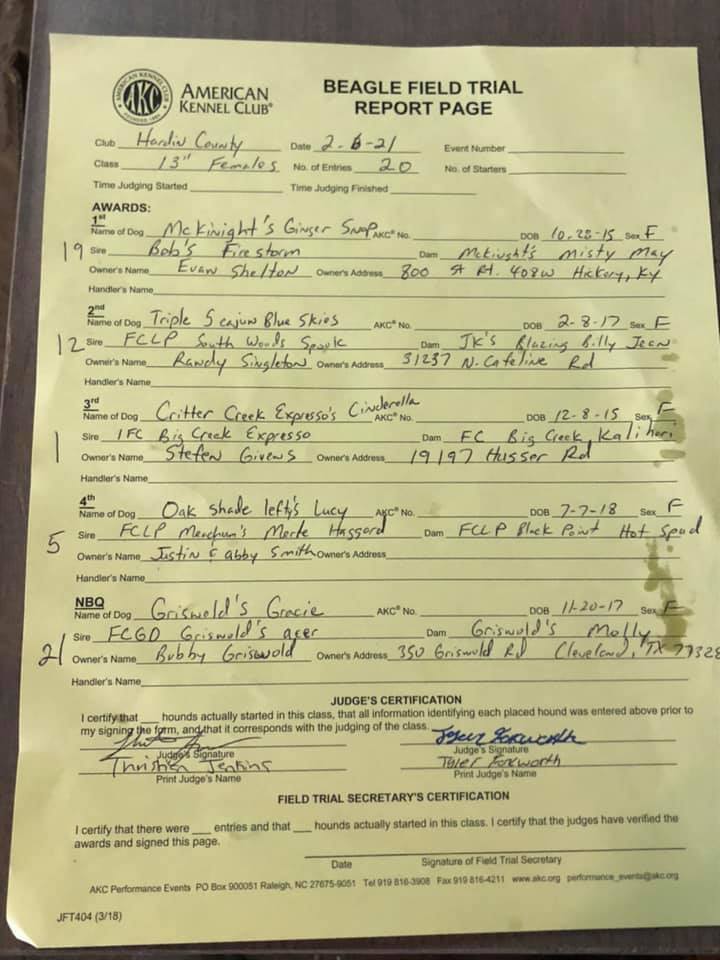 AMERICAN KENNEL CLUB
AKC
FOUNDED 1884
AMERICAN
KENNEL CLUB®
BEAGLE FIELD TRIAL
REPORT PAGE
Club Hardin County Date 2-6-21 Event Number
Class 13" Females No. of Entries 20 No. of Starters
Time Judging Started Time Judging Finished
AWARDS:
1st
Name of Dog McKinight's Ginger Snap AKC® No. DOB 10-28-15 Sex F
19 Sire Bob's Firestorm Dam McKinght's Misty May
Owner's Name Evan Shelton Owner's Address 800 St Rt. 408W Hickory, Ky
Handler's Name
2nd
Name of Dog Triple S enjun Blue Skies AKC® No. DOB 2-8-17 Sex F
12 Sire FCLP South Woods Spook Dam JK's Blazing Billy Jean
Owner's Name Randy Singleton Owner's Address 31237 N. Cafeline Rd
Handler's Name
3rd
Name of Dog Critter Creek Expresso's Cinderella AKC® No. DOB 12-8-15 Sex F
1 Sire IFC Big Creek Expresso Dam FC Big Creek Kalihari
Owner's Name Stefen Givens Owner's Address 19197 Husser Rd
Handler's Name
4th
Name of Dog Oak shade lefty's Lucy AKC® No. DOB 7-7-18 Sex F
5 Sire FCLP Meachum's Merle Haggard Dam FCLP Black Point Hot Spud
Owner's Name Justin & abby Smith Owner's Address
Handler's Name
NBQ
Name of Dog Griswold's Gracie AKC® No. DOB 11-20-17 Sex F
21 Sire FCGD Griswold's acer Dam Griswold's Molly
Owner's Name Bubby Griswold Owner's Address 350 Griswold Rd Cleveland, TX 77328
Handler's Name
JUDGE'S CERTIFICATION
I certify that ___ hounds actually started in this class, that all information identifying each placed hound was entered above prior to
my signing the form, and that it corresponds with the judging of the class.
Tyler Foxworth
Judge's Signature Judge's Signature
Christian Jenkins Tyler Foxworth
Print Judge's Name Print Judge's Name
FIELD TRIAL SECRETARY'S CERTIFICATION
I certify that there were ___ entries and that ___ hounds actually started in this class. I certify that the judges have verified the
awards and signed this page.
Date Signature of Field Trial Secretary
AKC Performance Events PO Box 900051 Raleigh, NC 27675-9051 Tel 919 816-3908 Fax 919 816-4211 www.akc.org performance_events@akc.org
JFT404 (3/18)